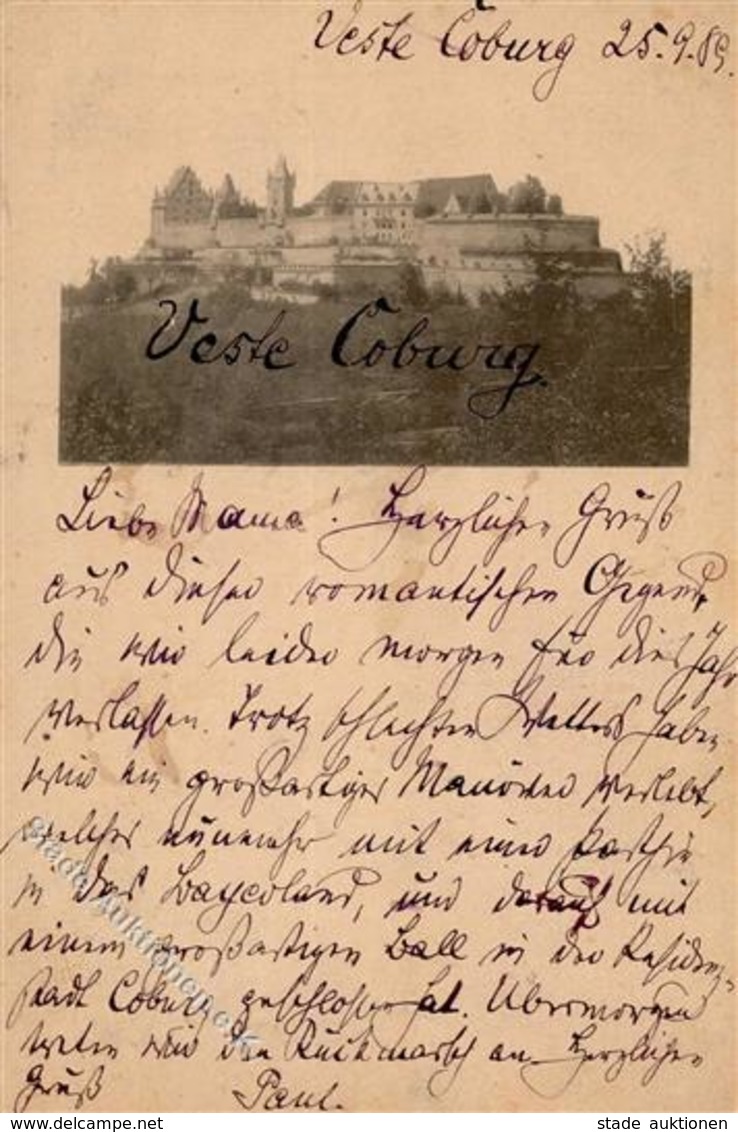 Veste Coburg 25.9.89.
Veste Coburg.
Liebe Mama! Herzlichen Gruß
aus dieser romantischen Gegend,
die wir leider morgen für dies Jahr
verlassen. Trotz schlechten Wetters haben
wir ein großartiges Manöver verlebt,
welches nunmehr mit einer Parthie
in das Bayerland, und darauf mit
einem großartigen Ball in der Residenz-
stadt Coburg geschlossen hat. Übermorgen
treten wir den Rückmarsch an. Herzlichen
Gruß Paul.
stade auktionen
stade auktionen